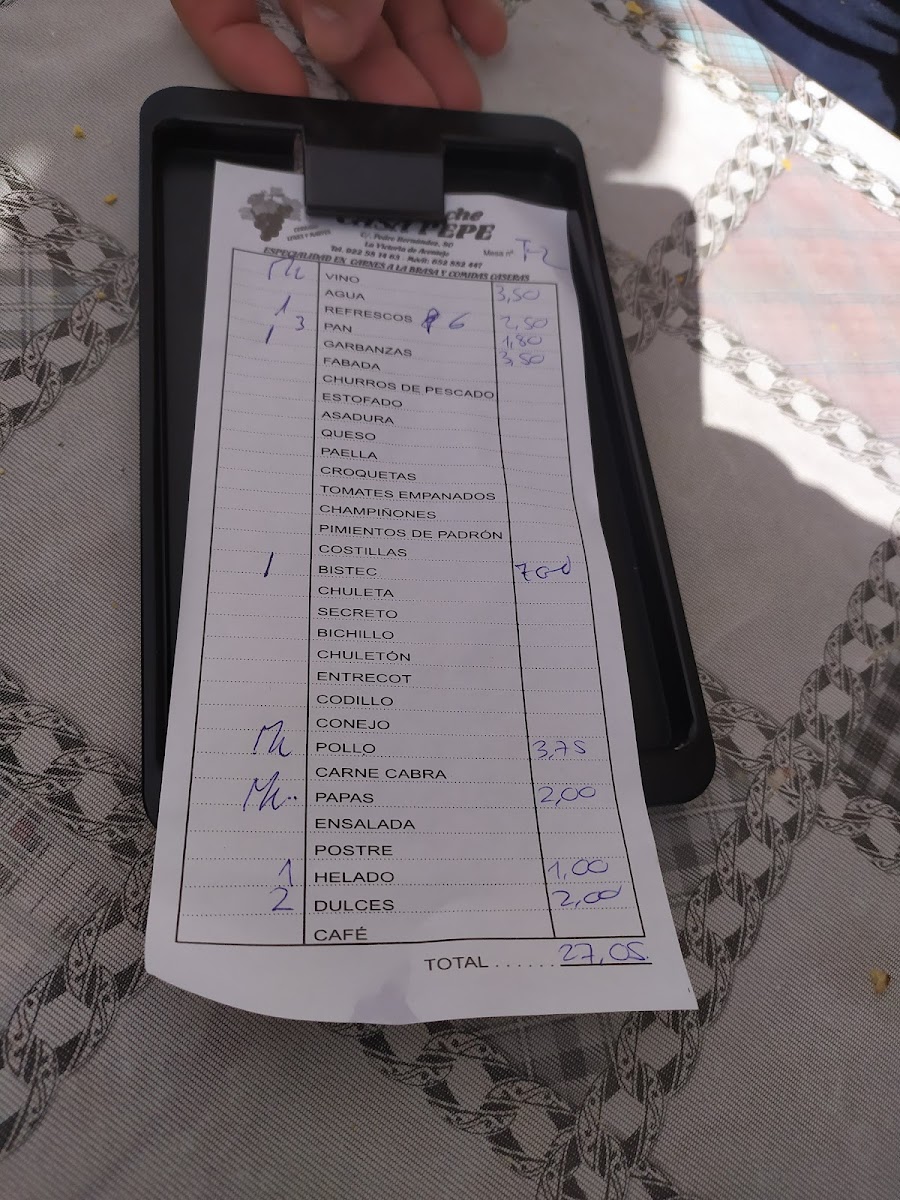 che
PEPE
C/. Pedro Hernández, 50
La Victoria de Acentejo
Mesa nº T-2
Tel. 922 58 14 63 - Movil: 652 552 447
ESPECIALIDAD EN CARNES A LA BRASA Y COMIDAS CASERAS
VINO 3,50
AGUA
1 REFRESCOS 6 2,50
3 PAN 1,80
1 GARBANZAS 3,50
FABADA
CHURROS DE PESCADO
ESTOFADO
ASADURA
QUESO
PAELLA
CROQUETAS
TOMATES EMPANADOS
CHAMPIÑONES
PIMIENTOS DE PADRÓN
COSTILLAS
1 BISTEC 7,00
CHULETA
SECRETO
BICHILLO
CHULETÓN
ENTRECOT
CODILLO
CONEJO
POLLO 3,75
CARNE CABRA
PAPAS 2,00
ENSALADA
POSTRE
1 HELADO 1,00
2 DULCES 2,00
CAFÉ
TOTAL...... 27,05